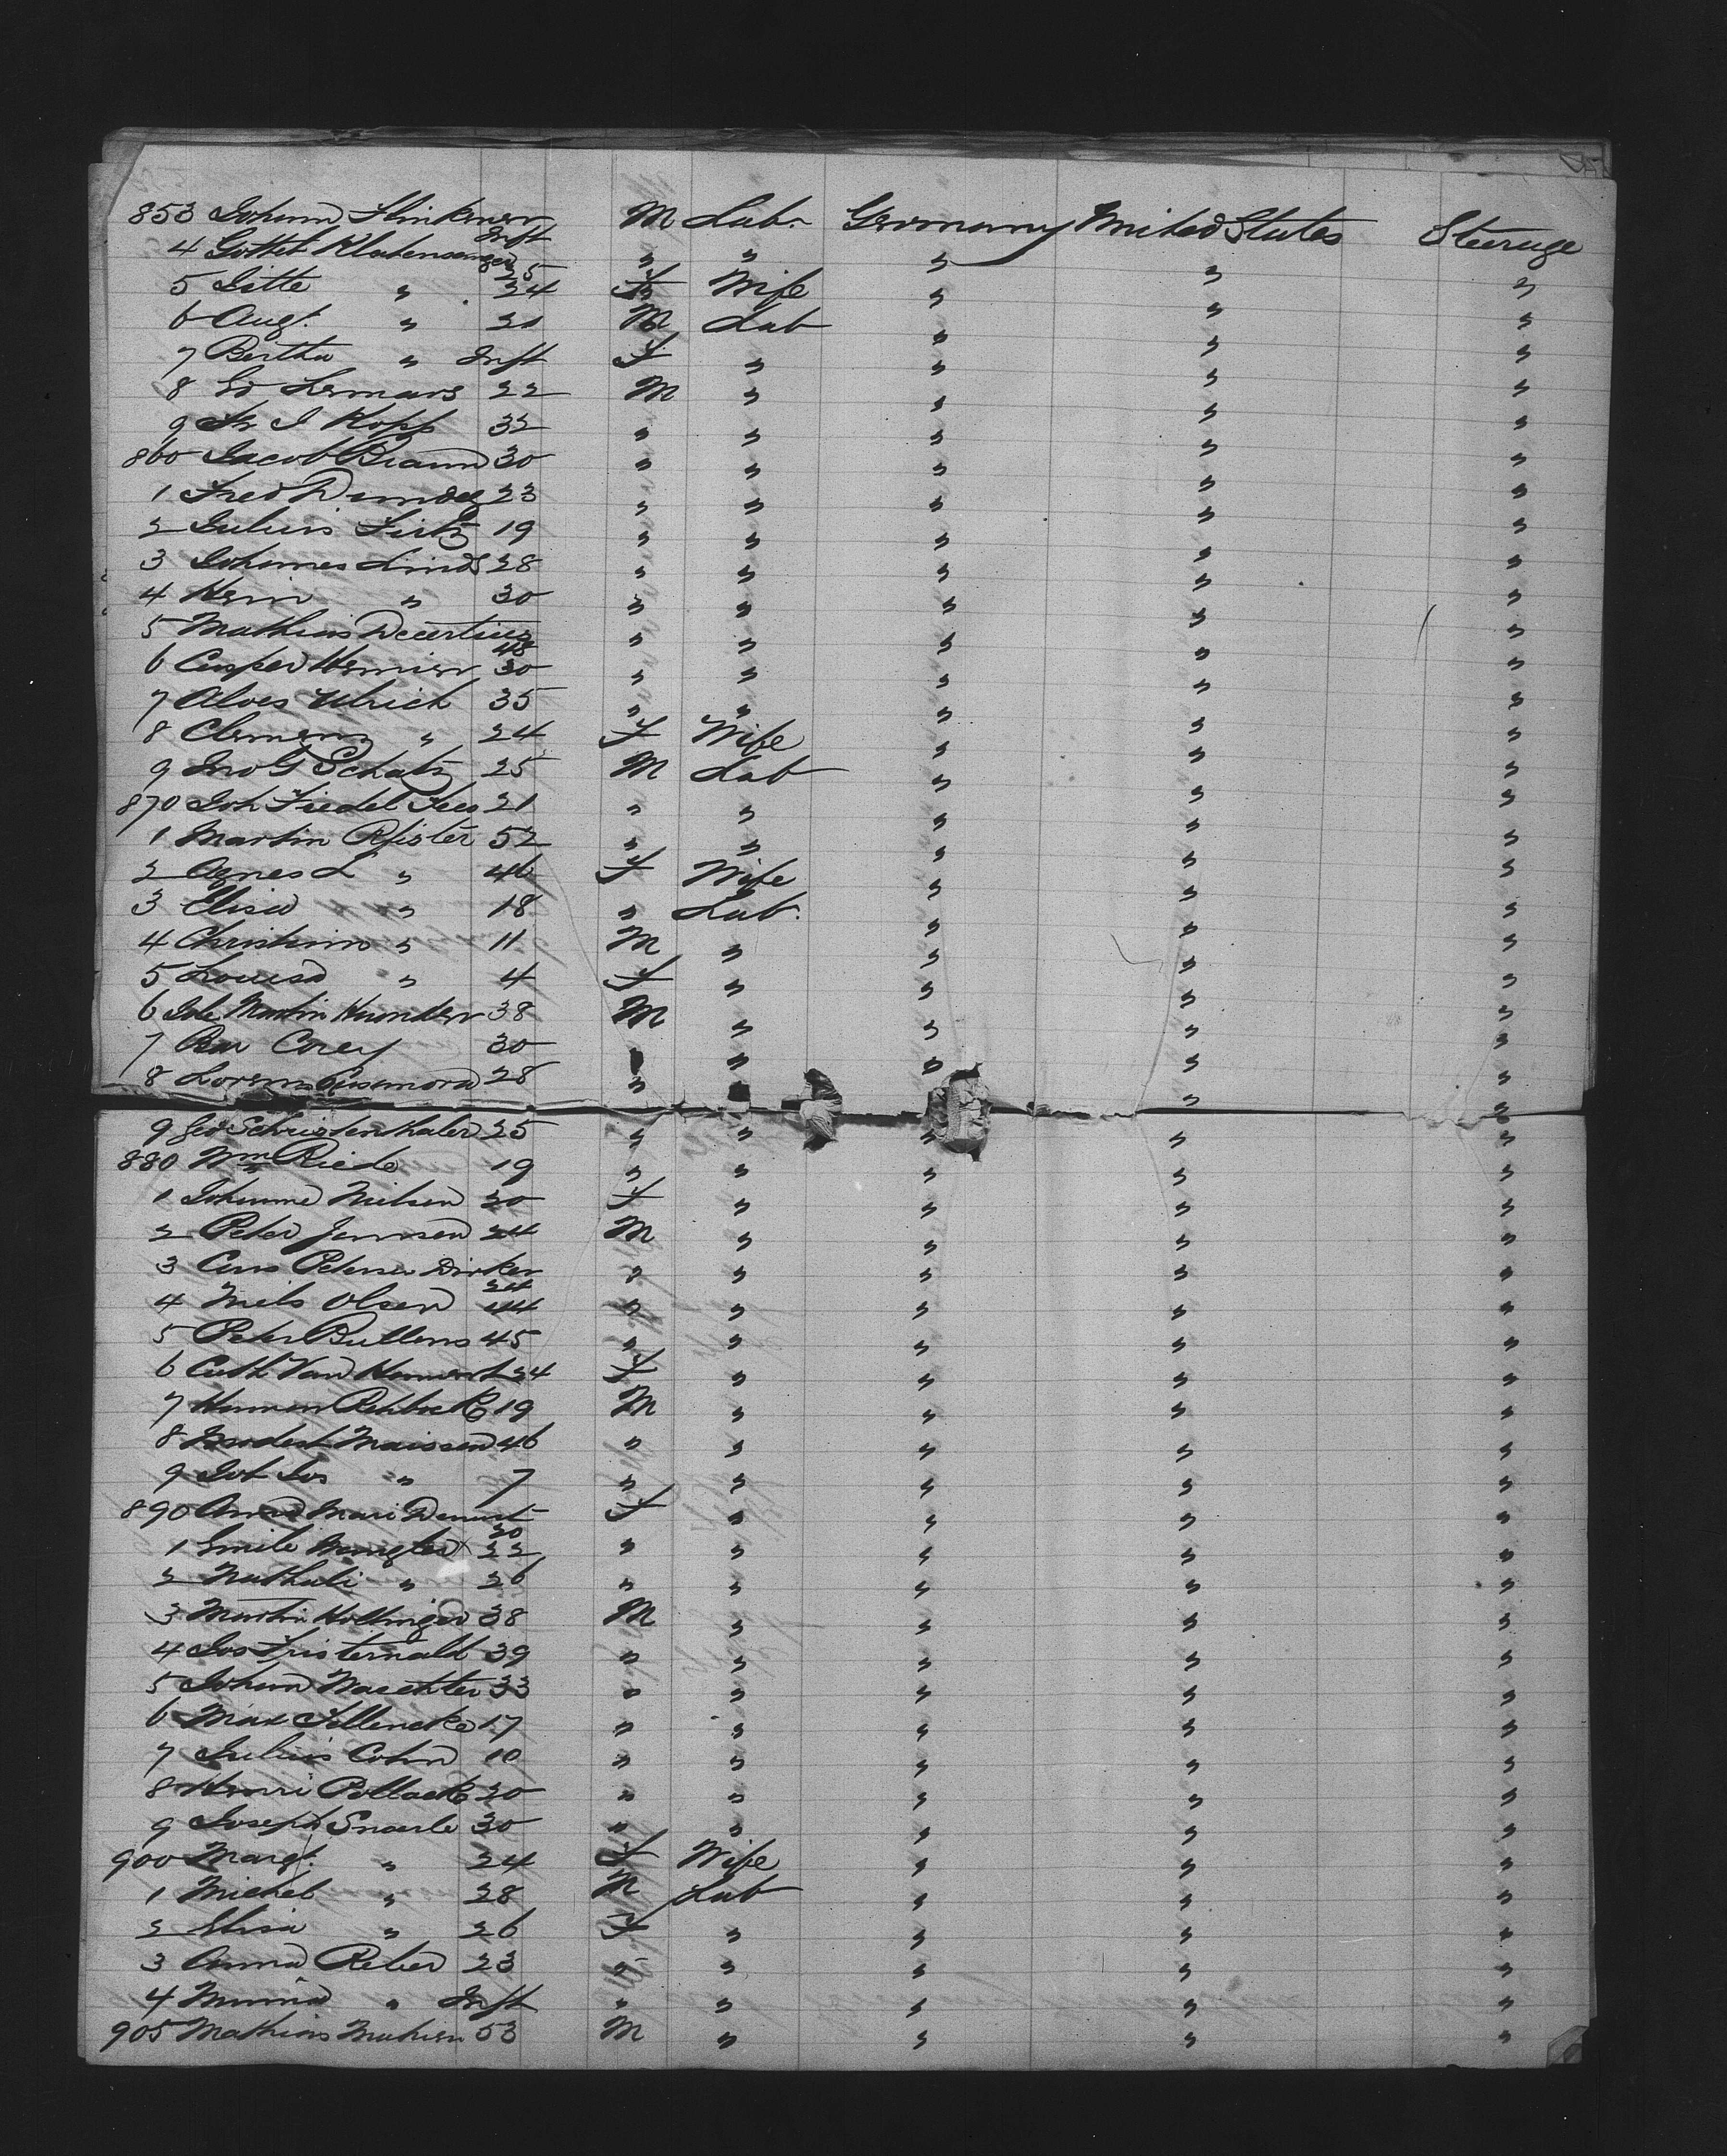 853 Johann Flinkener Inft M Lab. Germany United States Steerage
4 Gottet Klabensanger 25 " " " " "
5 Jitte " 24 F Wife " " "
6 Aug. " 21 M Lab " " "
7 Bertha " Inft F " " " "
8 Ed Lemars 22 M " " " "
9 Fr J Kopp 32 " " " " "
860 Jacob Braun 30 " " " " "
1 Fred 23 " " " " "
2 Julius Firtz 19 " " " " "
3 Johannes Linds 28 " " " " "
4 Hein " 30 " " " " "
5 Mathias 48 " " " " "
6 Casper 30 " " " " "
7 Aloes Ulrich 35 " " " " "
8 Clemens " 24 F Wife " " "
9 Jno G Schatz 25 M Lab " " "
870 Joh Fiedel Fees 21 " " " " "
1 Martin Pfister 52 " " " " "
2 Agnes L " 46 F Wife " " "
3 Elisa " 18 " Lab. " " "
4 Christian " 11 M " " " "
5 Louisa " 4 F " " " "
6 Martin 38 M " " " "
7 Corey 30 " " " " "
8 Lorenz 28 " " " " "
9 Geo Schristenthaler 25 " " " " "
880 Wm Riede 19 " " " " "
1 Johanne Nilsen 20 F " " " "
2 Peter Jensen 24 M " " " "
3 Peterses Dirker 24 " " " " "
4 Niels Olsen 44 " " " " "
5 Peter Bullens 45 " " " " "
6 Cath Van 24 F " " " "
7 Herman 19 M " " " "
8 Modest Maissen 46 " " " " "
9 Jos " 7 " " " " "
890 Anna Mari 30 F " " " "
1 Emile 22 " " " " "
2 Nathali " 26 " " " " "
3 Martin Hottinger 38 M " " " "
4 Jos Fristernald 39 " " " " "
5 Johann Waechter 33 " " " " "
6 Max Fellencke 17 " " " " "
7 Julius Cohn 10 " " " " "
8 Henri Pollack 20 " " " " "
9 Joseph Snaerle 30 " " " " "
900 Margt. " 24 F Wife " " "
1 Michel " 28 M Lab " " "
2 Elisa " 26 F " " " "
3 Anna Reber 23 " " " " "
4 Minna " Inft " " " " "
905 Mathias 53 M " " " "